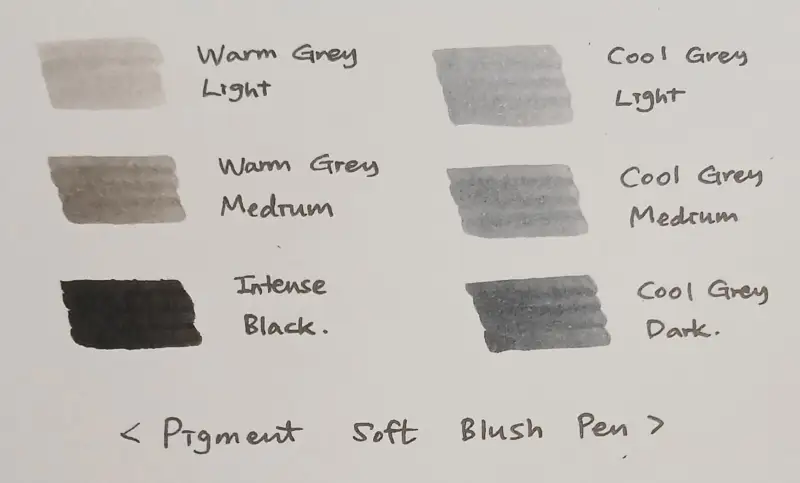 Warm Grey
Light
Cool Grey
Light
Warm Grey
Medium
Cool Grey
Medium
Intense
Black.
Cool Grey
Dark.
< Pigment Soft Blush Pen >